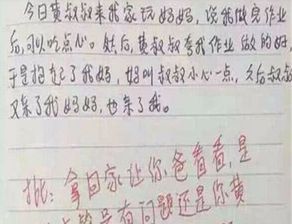 今日黄叔叔来我家玩妈妈，说我做完作业
后，可以吃点心。然后，黄叔叔夸我作业做的好，
于是抱起了我妈，妈叫叔叔小心一点，之后叔叔
又亲了我妈妈，也亲了我。
批：拿回家让你爸看看，是
有问题还是你黄